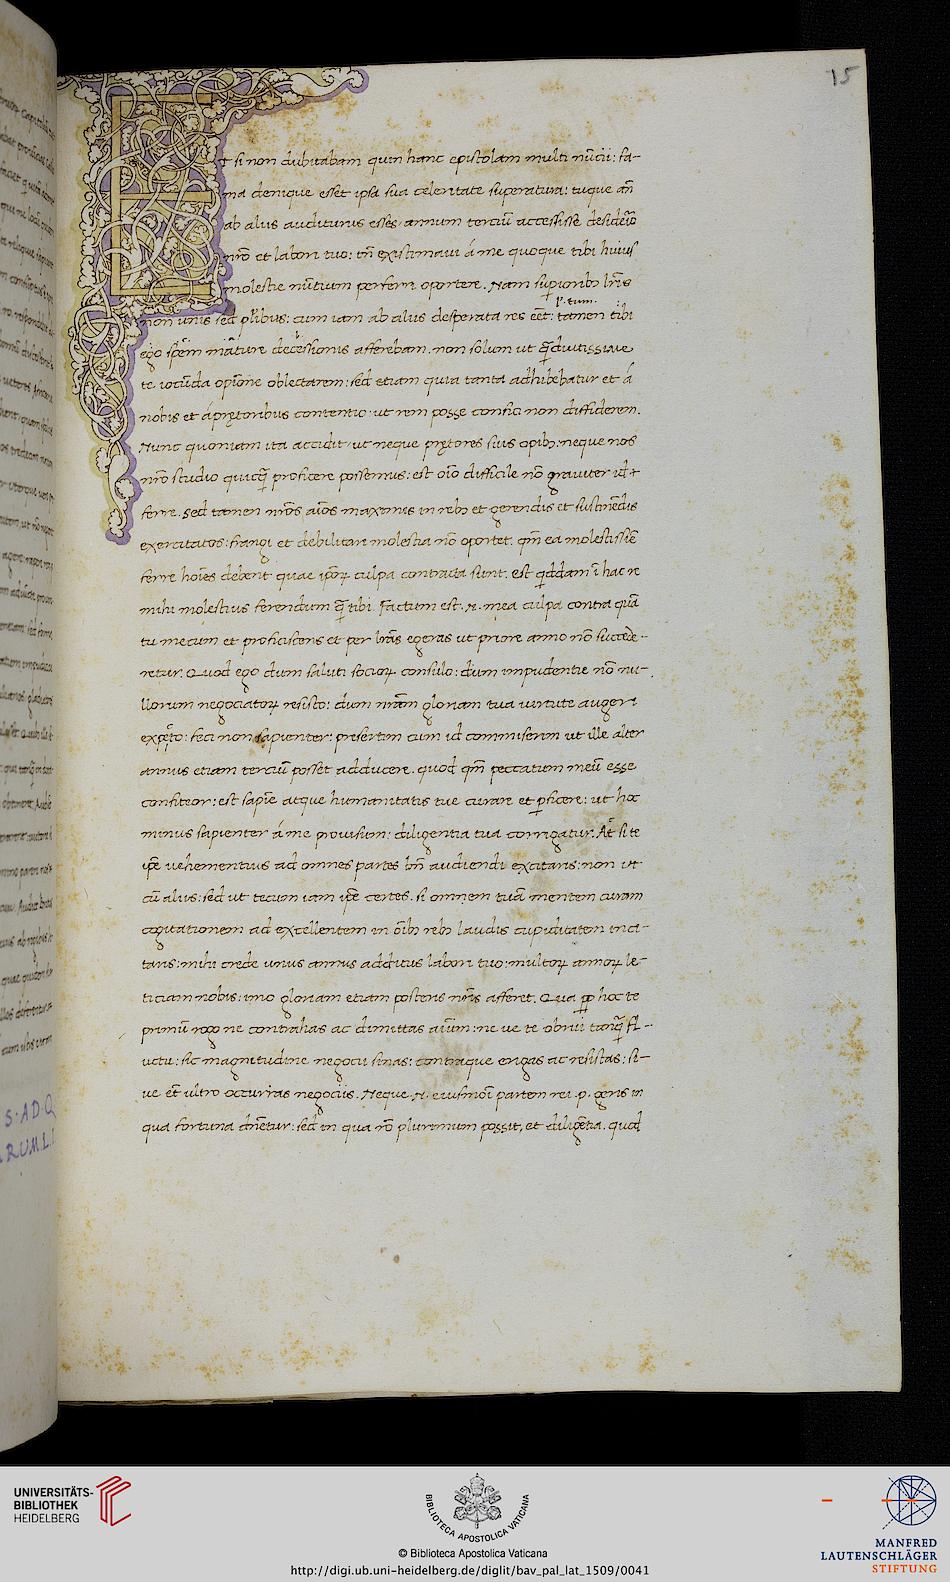 15
Et si non dubitabam quin hanc epistolam multi nūcii: fa-
ma denique esset ipsa sua celeritate superatura: tuque añ
ab aliis auditurus esses annum terciū accessisse desiderio
nr̄o et labori tuo: tn̄ existimavi á me quoque tibi huius
molestie nūtium perferri oportere. Nam supioribꝫ lr̄is
non unis sed plībus: cum iam ab aliis desperata res eēt: tamen tibi
ego spem māture decessionis afferebam. non solum ut q̄diutissime
te iocūda opīone oblectarem: sed etiam quia tanta adhibebatur et á
nobis et á prętoribus contentio: ut rem posse confici non diffiderem.
Nunc quoniam ita accidit ut neque prętores suis opibꝫ: neque nos
nr̄o studio quicq̄ proficere possemus: est oīo difficile nō graviter id
ferre. Sed tamen nr̄os aīos maximis in rebꝫ et gerendis et sustinēdis
exercitatos: frangi et debilitari molestia nō oportet. qm̄ ea molestissīē
ferre hoīes debent quae ip̄oꝝ culpa contracta sunt. est q̄ddam ī hac re
mihi molestius ferendum q̄ tibi. Factum est .n. mea culpa contra quā
tu mecum et proficiscens et per lr̄as egeras ut priore anno nō succede-
retur. Quod ego dum saluti socioꝝ consulo: dum impudentie nō nu-
llorum negociatoꝝ resisto: dum nr̄am gloriam tua virtute augeri
expeto: feci non sapienter: presertim cum id commiserim ut ille alter
annus etiam terciū posset adducere. quod qm̄ peccatum meū esse
confiteor: est sapīe atque humanitatis tue curare et ꝑficere: ut hoc
minus sapienter á me provisum: diligentia tua corrigatur. At si te
ip̄e vehementius ad omnes partes bn̄ audiendi excitaris: non ut
cū aliis: sed ut tecum iam ip̄e certes. si omnem tuā mentem curam
cogitationem ad excellentem in oībꝫ rebꝫ laudis cupiditatem inci-
taris: mihi crede unus annus additus labori tuo: multoꝝ annoꝝ le-
ticiam nobis: imo gloriam etiam posteris nr̄is afferet. Qua ꝓp hoc te
primū rogo ne contrahas ac dimittas aīum: ne ve te obrui tanq̄ fl-
uctu: sic magnitudine negocii sinas: contraque erigas ac resistas: si-
ve et ultro occurras negociis. Neque .n. eiusmōi partem rei .p. geris in
qua fortuna dn̄etur: sed in qua rō plurimum possit, et diligētia. quod
S·AD·Q
RUM.L.I
UNIVERSITÄTS-
BIBLIOTHEK
HEIDELBERG
BIBLIOTECA APOSTOLICA VATICANA
© Biblioteca Apostolica Vaticana
http://digi.ub.uni-heidelberg.de/diglit/bav_pal_lat_1509/0041
MANFRED
LAUTENSCHLÄGER
STIFTUNG